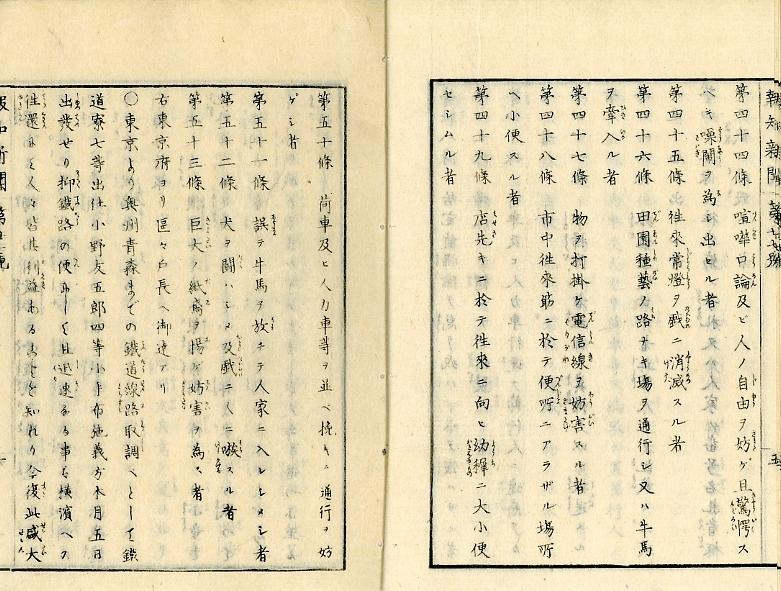 報知新聞
第四十四條 喧嘩口論及ビ人ノ自由ヲ妨ゲ且驚愕ス
ベキ噪鬧ヲ為シ出セル者
第四十五條 往來常燈ヲ戯ニ消滅スル者
第四十六條 田園種藝ノ路ナキ場ヲ通行シ又ハ牛馬
ヲ牽入ル者
第四十七條 物ヲ打掛ケ電信線ヲ妨害スル者
第四十八條 市中往來筋ニ於テ便所ニアラザル場所
ヘ小便スル者
第四十九條 店先キニ於テ往來ニ向ヒ幼穉ニ大小便
セシムル者
第五十條 荷車及ヒ人力車等ヲ並ベ挽キニ通行ヲ妨
ゲシ者
第五十一條 誤テ牛馬ヲ放チテ人家ニ入レシメシ者
第五十二條 犬ヲ闘ハシメ及戯ニ人ニ嗾スル者
第五十三條 巨大ノ紙鳶ヲ揚ゲ妨害ヲ為ス者
右東京府ヨリ區々戸長ヘ御達アリ
〇東京より奥州青森までの鐵道線路取調べとして鐵
道寮七等出仕小野友五郎四等小手布施義方本月五日
出發せり抑鐵路の便にして且迅速なる事を横濱への
往還にて人々皆其利益あることを知れり今復此盛大
報知新聞